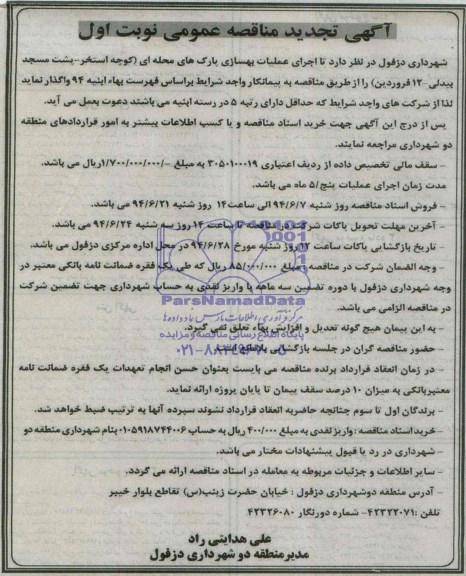 آگهی تجدید مناقصه عمومی نوبت اول
شهرداری دزفول در نظر دارد تا اجرای عملیات بهسازی پارک های محله ای (کوچه استخر-پشت مسجد
بیدلی-۱۲ فروردین) را از طریق مناقصه به پیمانکار واجد شرایط براساس فهرست بهاء ابنیه ۹۴ واگذار نماید
لذا از شرکت های واجد شرایط که حداقل دارای رتبه ۵ در رسته ابنیه می باشند دعوت بعمل می آید.
پس از درج این آگهی جهت خرید اسناد مناقصه و یا کسب اطلاعات بیشتر به امور قراردادهای منطقه
دو شهرداری مراجعه نمایند.
- سقف مالی تخصیص داده از ردیف اعتباری ۳۰۵۰۱۰۰۰۱۹ به مبلغ -/۱/۷۰۰/۰۰۰/۰۰۰ریال می باشد.
مدت زمان اجرای عملیات پنج/۵ ماه می باشد.
- فروش اسناد مناقصه روز شنبه ۹۴/۶/۷ الی ساعت۱۴ روز شنبه ۹۴/۶/۲۱ می باشد.
- آخرین مهلت تحویل پاکات شرکت در مناقصه تا ساعت ۱۴ روز سه شنبه ۹۴/۶/۲۴ می باشد.
- تاریخ بازگشایی پاکات ساعت ۱۲ روز شنبه مورخ ۹۴/۶/۲۸ در محل اداره مرکزی دزفول می باشد.
- وجه الضمان شرکت در مناقصه مبلغ ۸۵/۰۰۰/۰۰۰ ریال که طی یک فقره ضمانت نامه بانکی معتبر در
وجه شهرداری دزفول با دوره تضمین سه ماهه یا واریز نقدی به حساب شهرداری جهت تضمین شرکت
در مناقصه الزامی می باشد.
- به این پیمان هیچ گونه تعدیل و افزایش بهاء تعلق نمی گیرد.
حضور مناقصه گران در جلسه بازگشایی بلامانع است.
- در زمان انعقاد قرارداد برنده مناقصه می بایست بعنوان حسن انجام تعهدات یک فقره ضمانت نامه
معتبربانکی به میزان ۱۰ درصد سقف پیمان تا پایان پروژه ارائه نماید.
- برندگان اول تا سوم چنانچه حاضربه انعقاد قرارداد نشوند سپرده آنها به ترتیب ضبط خواهد شد.
- خرید اسناد مناقصه :واریز نقدی به مبلغ ۴۰۰/۰۰۰ ریال به حساب ۰۱۰۵۹۱۸۷۴۴۰۰۶بنام شهرداری منطقه دو
- شهرداری در رد یا قبول پیشنهادات مختار می باشد.
- سایر اطلاعات و جزئیات مربوطه به معامله در اسناد مناقصه ارائه می گردد.
- آدرس منطقه دوشهرداری دزفول : خیابان حضرت زینب(س) تقاطع بلوار خیبر
تلفن :۴۲۳۲۲۰۷۱- شماره دورنگار ۴۲۳۲۶۰۸۰
علی هدایتی راد
مدیرمنطقه دو شهرداری دزفول
ParsNamadData
پایگاه اطلاع رسانی مناقصه و مزایده